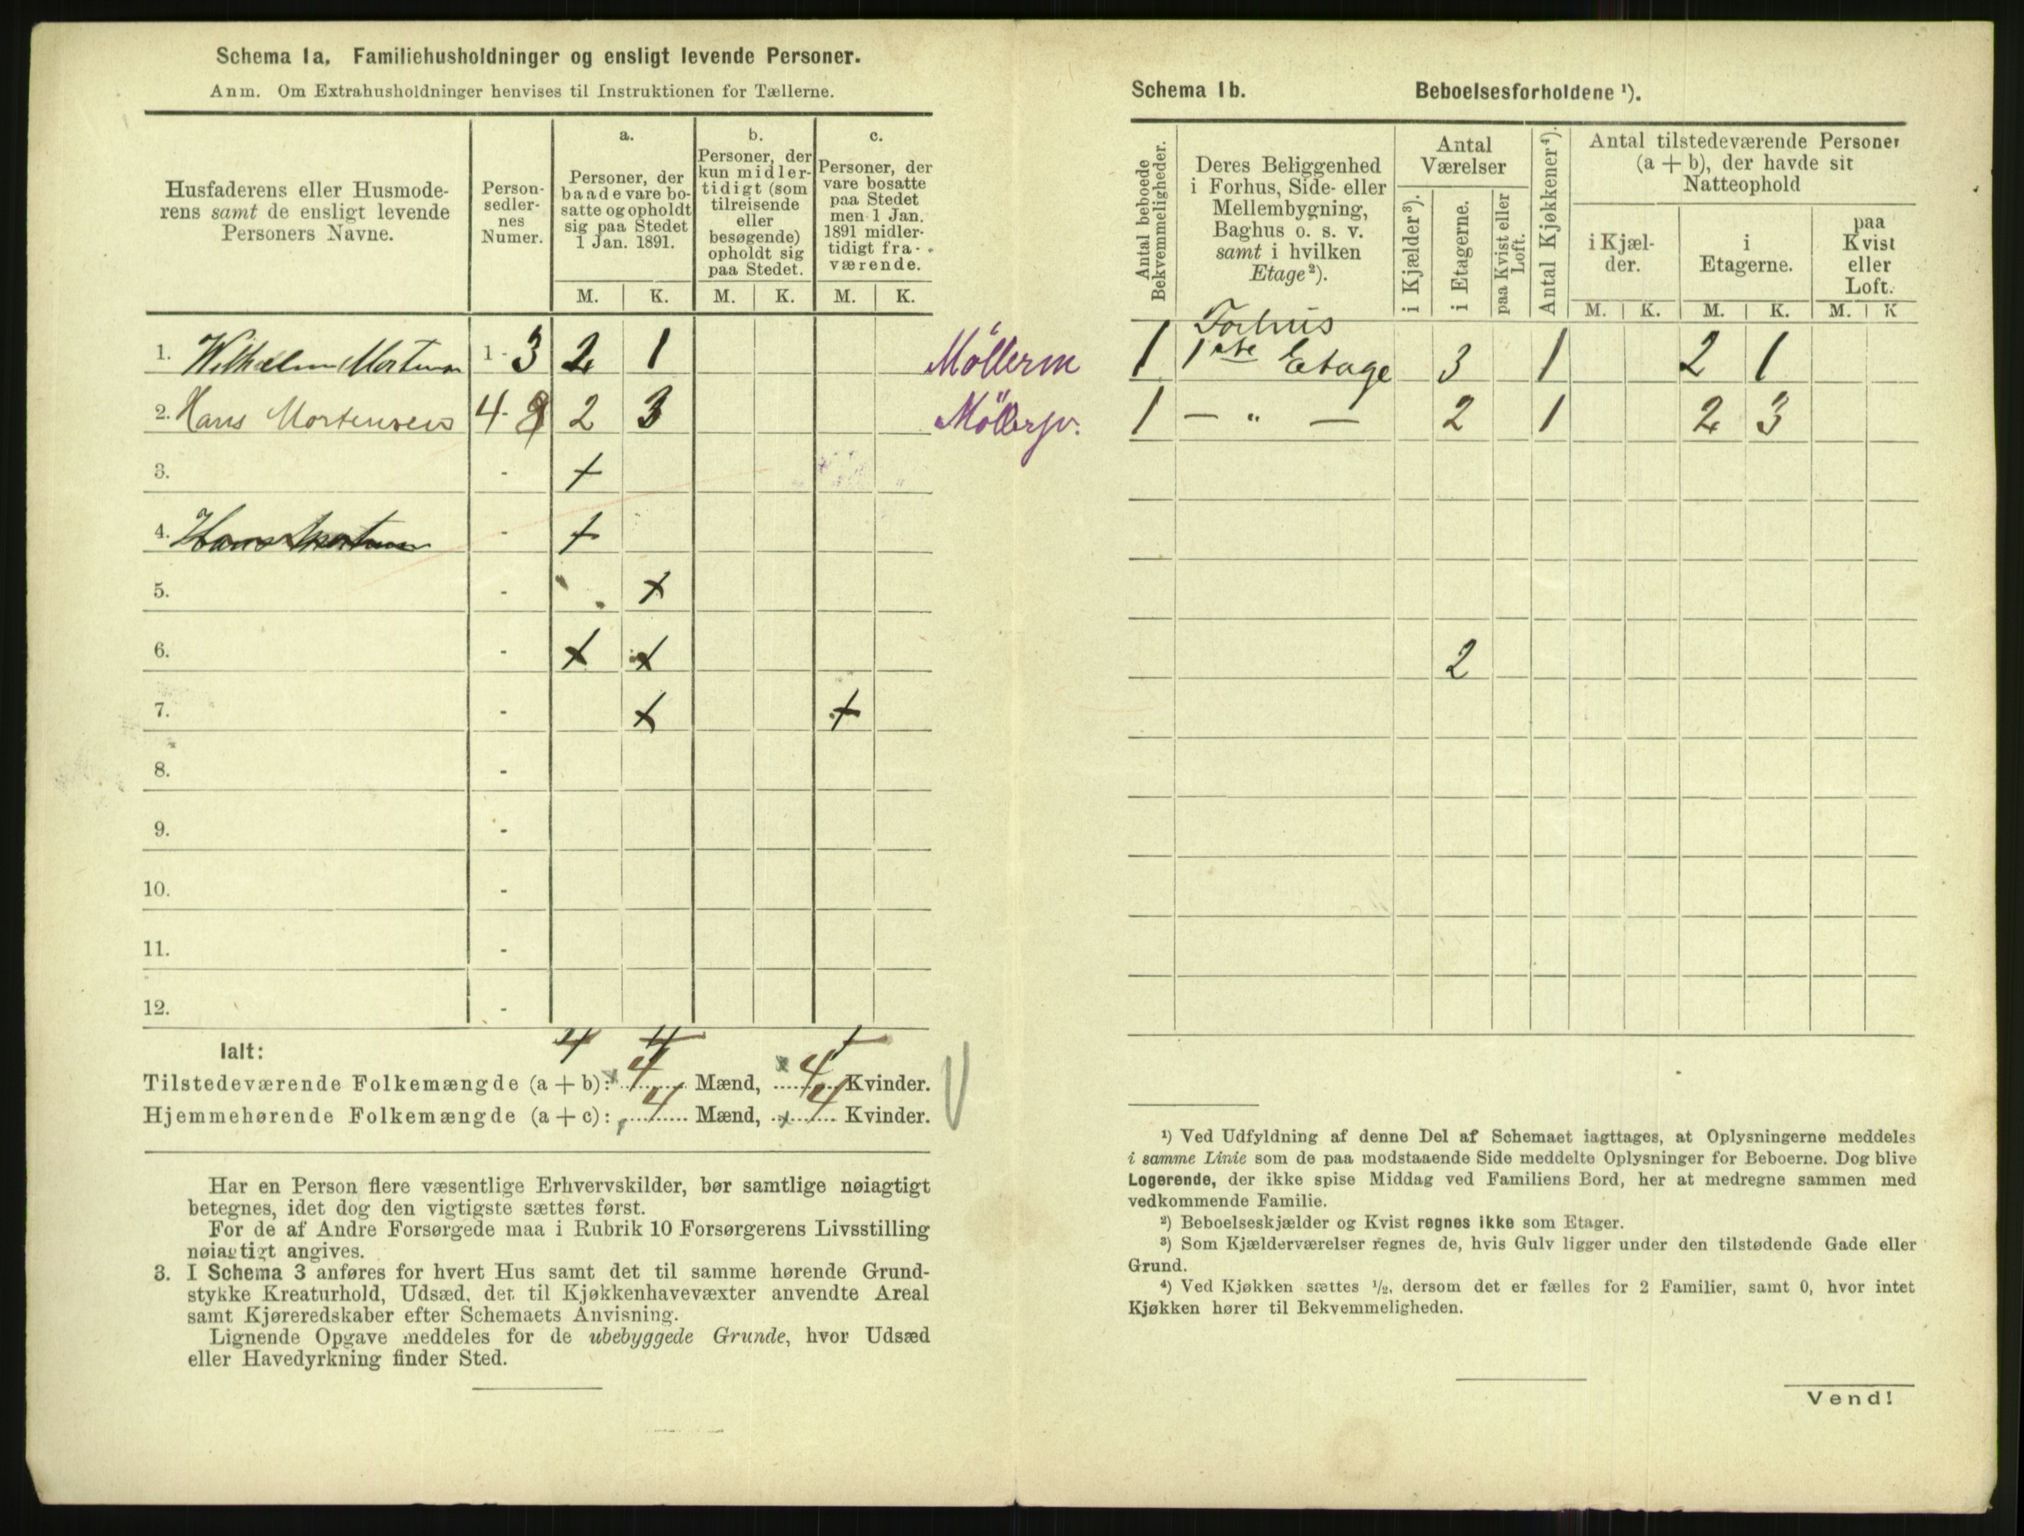 Schema 1a. Familiehusholdninger og ensligt levende Personer.
Anm. Om Extrahusholdninger henvises til Instruktionen for Tællerne.
Husfaderens eller Husmode-
rens samt de ensligt levende
Personers Navne.
Person-
sedler-
nes
Numer.
a.
Personer, der
baade vare bo-
satte og opholdt
sig paa Stedet
1 Jan. 1891.
b.
Personer, der
kun midler-
tidigt (som
tilreisende
eller
besøgende)
opholdt sig
paa Stedet.
c.
Personer, der
vare bosatte
paa Stedet
men 1 Jan.
1891 midler-
tidigt fra-
værende.
M. K. M. K. M. K.
1. Wilhelm Mortensen 1 - 3 2 1 Möllerm
2. Hans Mortensens 4 - 8 2 3 Möllersv.
3. - +
4. Hans Mortensen - +
5. - x
6. - x x
7. - x +
8. -
9. -
10. -
11. -
12. -
Ialt: 4 4 1
Tilstedeværende Folkemængde (a + b): x 4 Mænd, x 4 Kvinder.
Hjemmehørende Folkemængde (a + c): 4 Mænd, x 4 Kvinder.
Har en Person flere væsentlige Erhvervskilder, bør samtlige nøiagtigt
betegnes, idet dog den vigtigste sættes først.
For de af Andre Forsørgede maa i Rubrik 10 Forsørgerens Livsstilling
nøiagtigt angives.
3. I Schema 3 anføres for hvert Hus samt det til samme hørende Grund-
stykke Kreaturhold, Udsæd, det til Kjøkkenhavevæxter anvendte Areal
samt Kjøreredskaber efter Schemaets Anvisning.
Lignende Opgave meddeles for de ubebyggede Grunde, hvor Udsæd
eller Havedyrkning finder Sted.
Schema 1b. Beboelsesforholdene ¹).
Antal beboede
Bekvemmeligheder.
Deres Beliggenhed
i Forhus, Side- eller
Mellembygning,
Baghus o. s. v.
samt i hvilken
Etage²).
Antal
Værelser
i Kjælder³).
i Etagerne.
paa Kvist eller
Loft.
Antal Kjøkkener⁴).
Antal tilstedeværende Personer
(a + b), der havde sit
Natteophold
i Kjæl-
der.
i
Etagerne.
paa
Kvist
eller
Loft.
M. K. M. K. M. K
Forhus
1 1ste Etage 3 1 2 1
1 — „ — 2 1 2 3
2
¹) Ved Udfyldning af denne Del af Schemaet iagttages, at Oplysningerne meddeles
i samme Linie som de paa modstaaende Side meddelte Oplysninger for Beboerne. Dog blive
Logerende, der ikke spise Middag ved Familiens Bord, her at medregne sammen med
vedkommende Familie.
²) Beboelseskjælder og Kvist regnes ikke som Etager.
³) Som Kjælderværelser regnes de, hvis Gulv ligger under den tilstødende Gade eller
Grund.
⁴) Ved Kjøkken sættes ½, dersom det er fælles for 2 Familier, samt 0, hvor intet
Kjøkken hører til Bekvemmeligheden.
Vend!